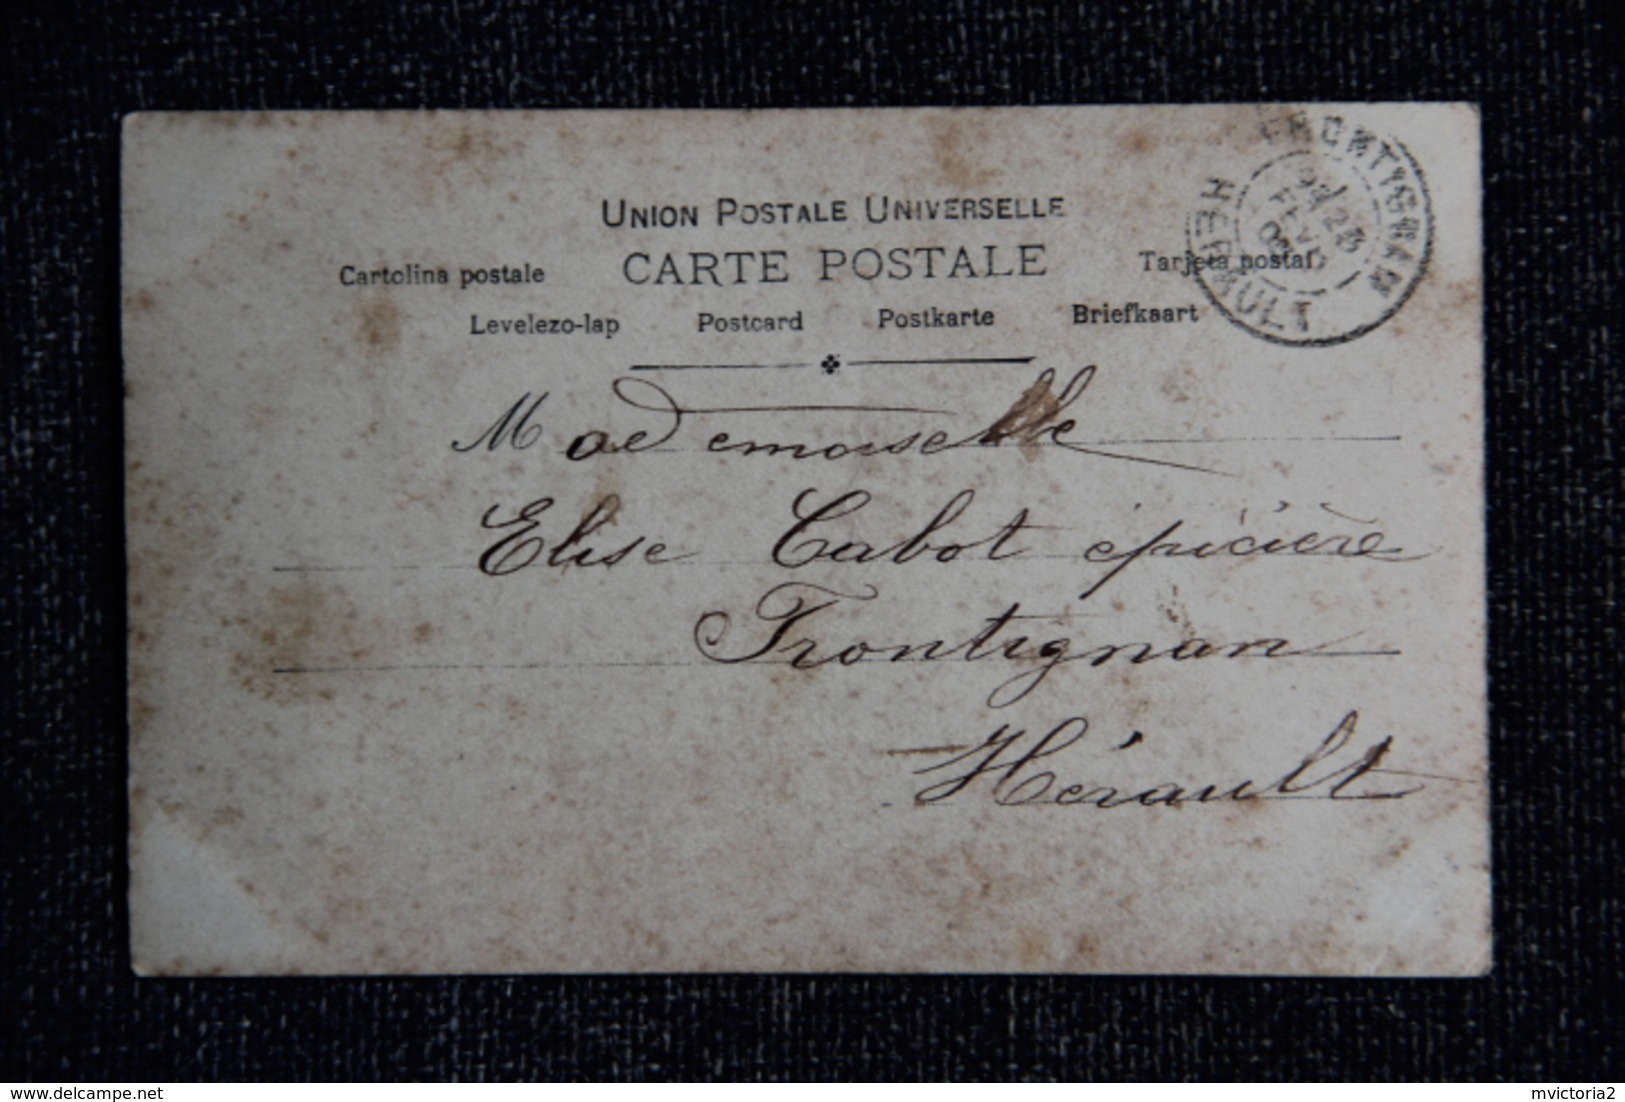 UNION POSTALE UNIVERSELLE
CARTE POSTALE
Cartolina postale
Tarjeta postal
Levelezo-lap Postcard Postkarte Briefkaart
FRONTIGNAN
HERAULT
Mademoiselle
Elise Cabot épicière
Frontignan
Hérault
delcampe.net
mvictoria2